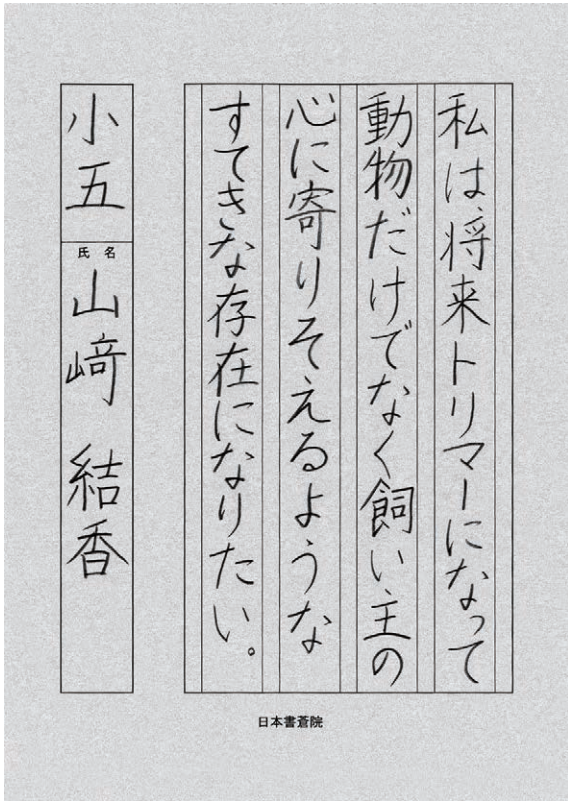 私は、将来トリマーになって
動物だけでなく飼い主の
心に寄りそえるような
すてきな存在になりたい。
小五
氏名
山﨑 結香
日本書蒼院